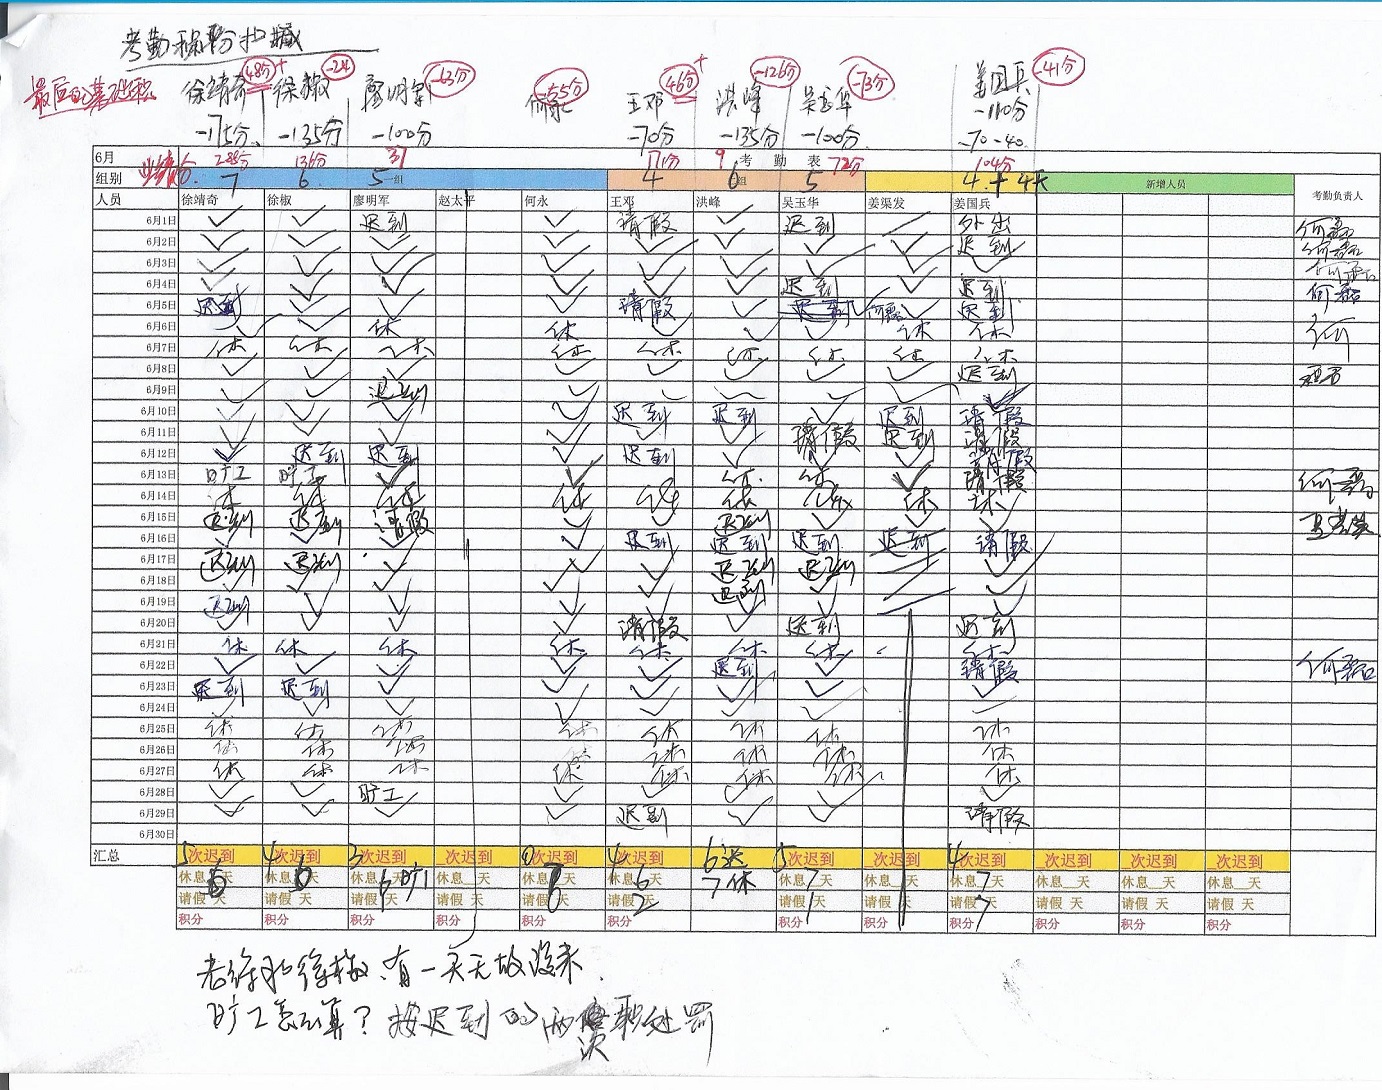 考勤积分扣减
最后的基础积 徐靖奇 48分+ 徐椒 -24 廖明军 -63分 何永 -55分 王邓 46分+ 洪峰 -126分 吴玉华 -73分 姜国兵 -41分
-175分 -135分 -100分 -70分 -135分 -100分 -110分
-70-40
6月 288分 136分 37 171分 9 考 勤 表 72分 104分
组别 业绩分 7 6 5 一组 4 6 组 5 4+4天 新增人员
人员 徐靖奇 徐椒 廖明军 赵太平 何永 王邓 洪峰 吴玉华 姜渠发 姜国兵 考勤负责人
6月1日 ✓ ✓ 迟到 ✓ 请假 ✓ 迟到 外出 何磊
6月2日 ✓ ✓ ✓ ✓ ✓ ✓ ✓ ✓ 迟到 何磊
6月3日 ✓ ✓ ✓ ✓ ✓ ✓ ✓ ✓ ✓ 何磊
6月4日 ✓ ✓ ✓ ✓ ✓ ✓ 迟到 ✓ 迟到 何磊
6月5日 迟到 ✓ ✓ ✓ 请假 ✓ 迟到 何磊 ✓ 迟到
6月6日 ✓ ✓ 休 休 ✓ ✓ ✓ 休 休 何
6月7日 休 休 休 休 休 休 休 休 休
6月8日 ✓ ✓ ✓ ✓ ✓ ✓ ✓ ✓ 迟到
6月9日 ✓ ✓ 迟到 ✓ ✓
6月10日 ✓ ✓ ✓ ✓ 迟到 迟到 ✓ 迟到 请假
6月11日 ✓ ✓ ✓ ✓ ✓ ✓ 请假 迟到 请假
6月12日 ✓ 迟到 迟到 ✓ 迟到 ✓ ✓ ✓ 请假
6月13日 旷工 旷工 ✓ ✓ ✓ 休 休 ✓ 请假 何磊
6月14日 休 休 休 休 休 休 休 休 休
6月15日 迟到 迟到 请假 ✓ ✓ 迟到 ✓ ✓ ✓
6月16日 ✓ ✓ ✓ ✓ 迟到 迟到 迟到 迟到 请假
6月17日 迟到 迟到 ✓ ✓ ✓ 迟到 迟到 ✓
6月18日 ✓ ✓ ✓ ✓ ✓ 迟到 ✓ ✓
6月19日 迟到 ✓ ✓ ✓ ✓ ✓ ✓
6月20日 ✓ ✓ ✓ ✓ 请假 ✓ 迟到 迟到
6月21日 休 休 休 休 休 休 休 休
6月22日 ✓ ✓ ✓ ✓ ✓ 迟到 ✓ 请假 何磊
6月23日 迟到 迟到 ✓ ✓ ✓ ✓ ✓ ✓
6月24日 ✓ ✓ ✓ ✓ ✓ ✓ ✓ ✓
6月25日 休 休 休 休 休 休 休 休
6月26日 休 休 休 休 休 休 休 休
6月27日 休 休 休 休 休 休 休 休
6月28日 ✓ ✓ 旷工 ✓ ✓ ✓ ✓ ✓
6月29日 ✓ ✓ ✓ ✓ 迟到 ✓ ✓ 请假
6月30日
汇总 5次迟到 4次迟到 3次迟到 次迟到 0次迟到 4次迟到 6迟 5次迟到 次迟到 4次迟到 次迟到 次迟到 次迟到
休息6天 休息6天 休息6天 旷1 休息__天 休息8天 休息6天 7休 休息7天 休息__天 休息7天 休息__天 休息__天 休息__天
请假 天 请假 天 请假 天 请假 天 请假 天 请假2天 请假1天 请假 天 请假7天 请假 天 请假 天 请假 天
积分 积分 积分 积分 积分 积分 积分 积分 积分 积分 积分 积分
老徐和徐椒.有一天无故没来.
旷工怎么算?按迟到的两倍 处罚
次